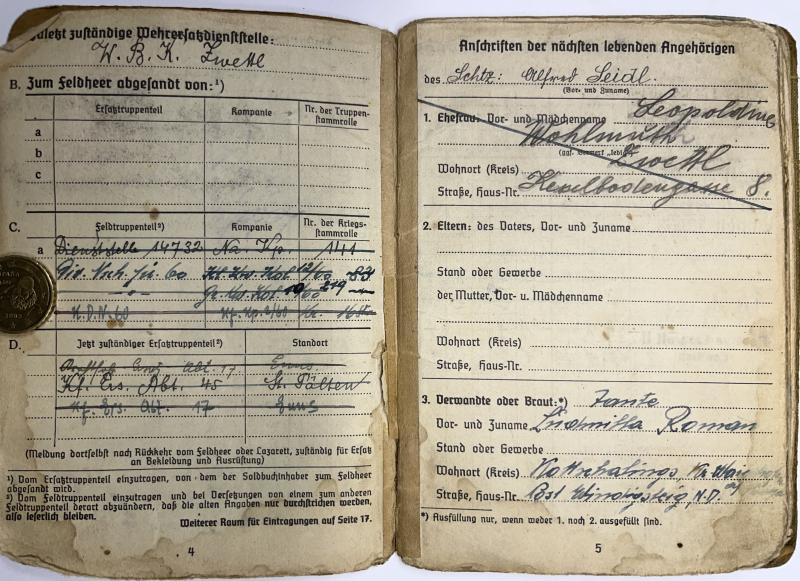 Zuletzt zuständige Wehrersatzdienststelle:
W. B. K. Zwettl
B. Zum Feldheer abgesandt von:¹)
Ersatztruppenteil
Kompanie
Nr. der Truppen-
stammrolle
a
b
c
C.
Feldtruppenteil²)
Kompanie
Nr. der Kriegs-
stammrolle
a Dienststelle 14732 Na. Kp. 141
60
K.D.N. 60
D.
Jetzt zuständiger Ersatztruppenteil²)
Standort
Abt. 17 Enns
Kf. Ers. Abt. 45 St. Pölten
Kf. Ers. Abt. 17 Enns
(Meldung dortselbst nach Rückkehr vom Feldheer oder Lazarett, zuständig für Ersatz
an Bekleidung und Ausrüstung)
¹) Vom Ersatztruppenteil einzutragen, von dem der Soldbuchinhaber zum Feldheer
abgesandt wird.
²) Vom Feldtruppenteil einzutragen und bei Versetzungen von einem zum anderen
Feldtruppenteil derart abzuändern, daß die alten Angaben nur durchstrichen werden,
also leserlich bleiben.
Weiterer Raum für Eintragungen auf Seite 17.
4
Anschriften der nächsten lebenden Angehörigen
des Schtz: Alfred Seidl.
(Vor- und Zuname)
1. Ehefrau: Vor- und Mädchenname Leopoldine
Wohlmuth
(ggf. Vermerk „ledig“)
Wohnort (Kreis) Zwettl
Straße, Haus-Nr. 8.
2. Eltern: des Vaters, Vor- und Zuname
Stand oder Gewerbe
der Mutter, Vor- u. Mädchenname
Wohnort (Kreis)
Straße, Haus-Nr.
3. Verwandte oder Braut:*) Tante
Vor- und Zuname Ludmilla Roman
Stand oder Gewerbe
Wohnort (Kreis)
Straße, Haus-Nr. Windigsteig, N.D.
*) Ausfüllung nur, wenn weder 1. noch 2. ausgefüllt sind.
5